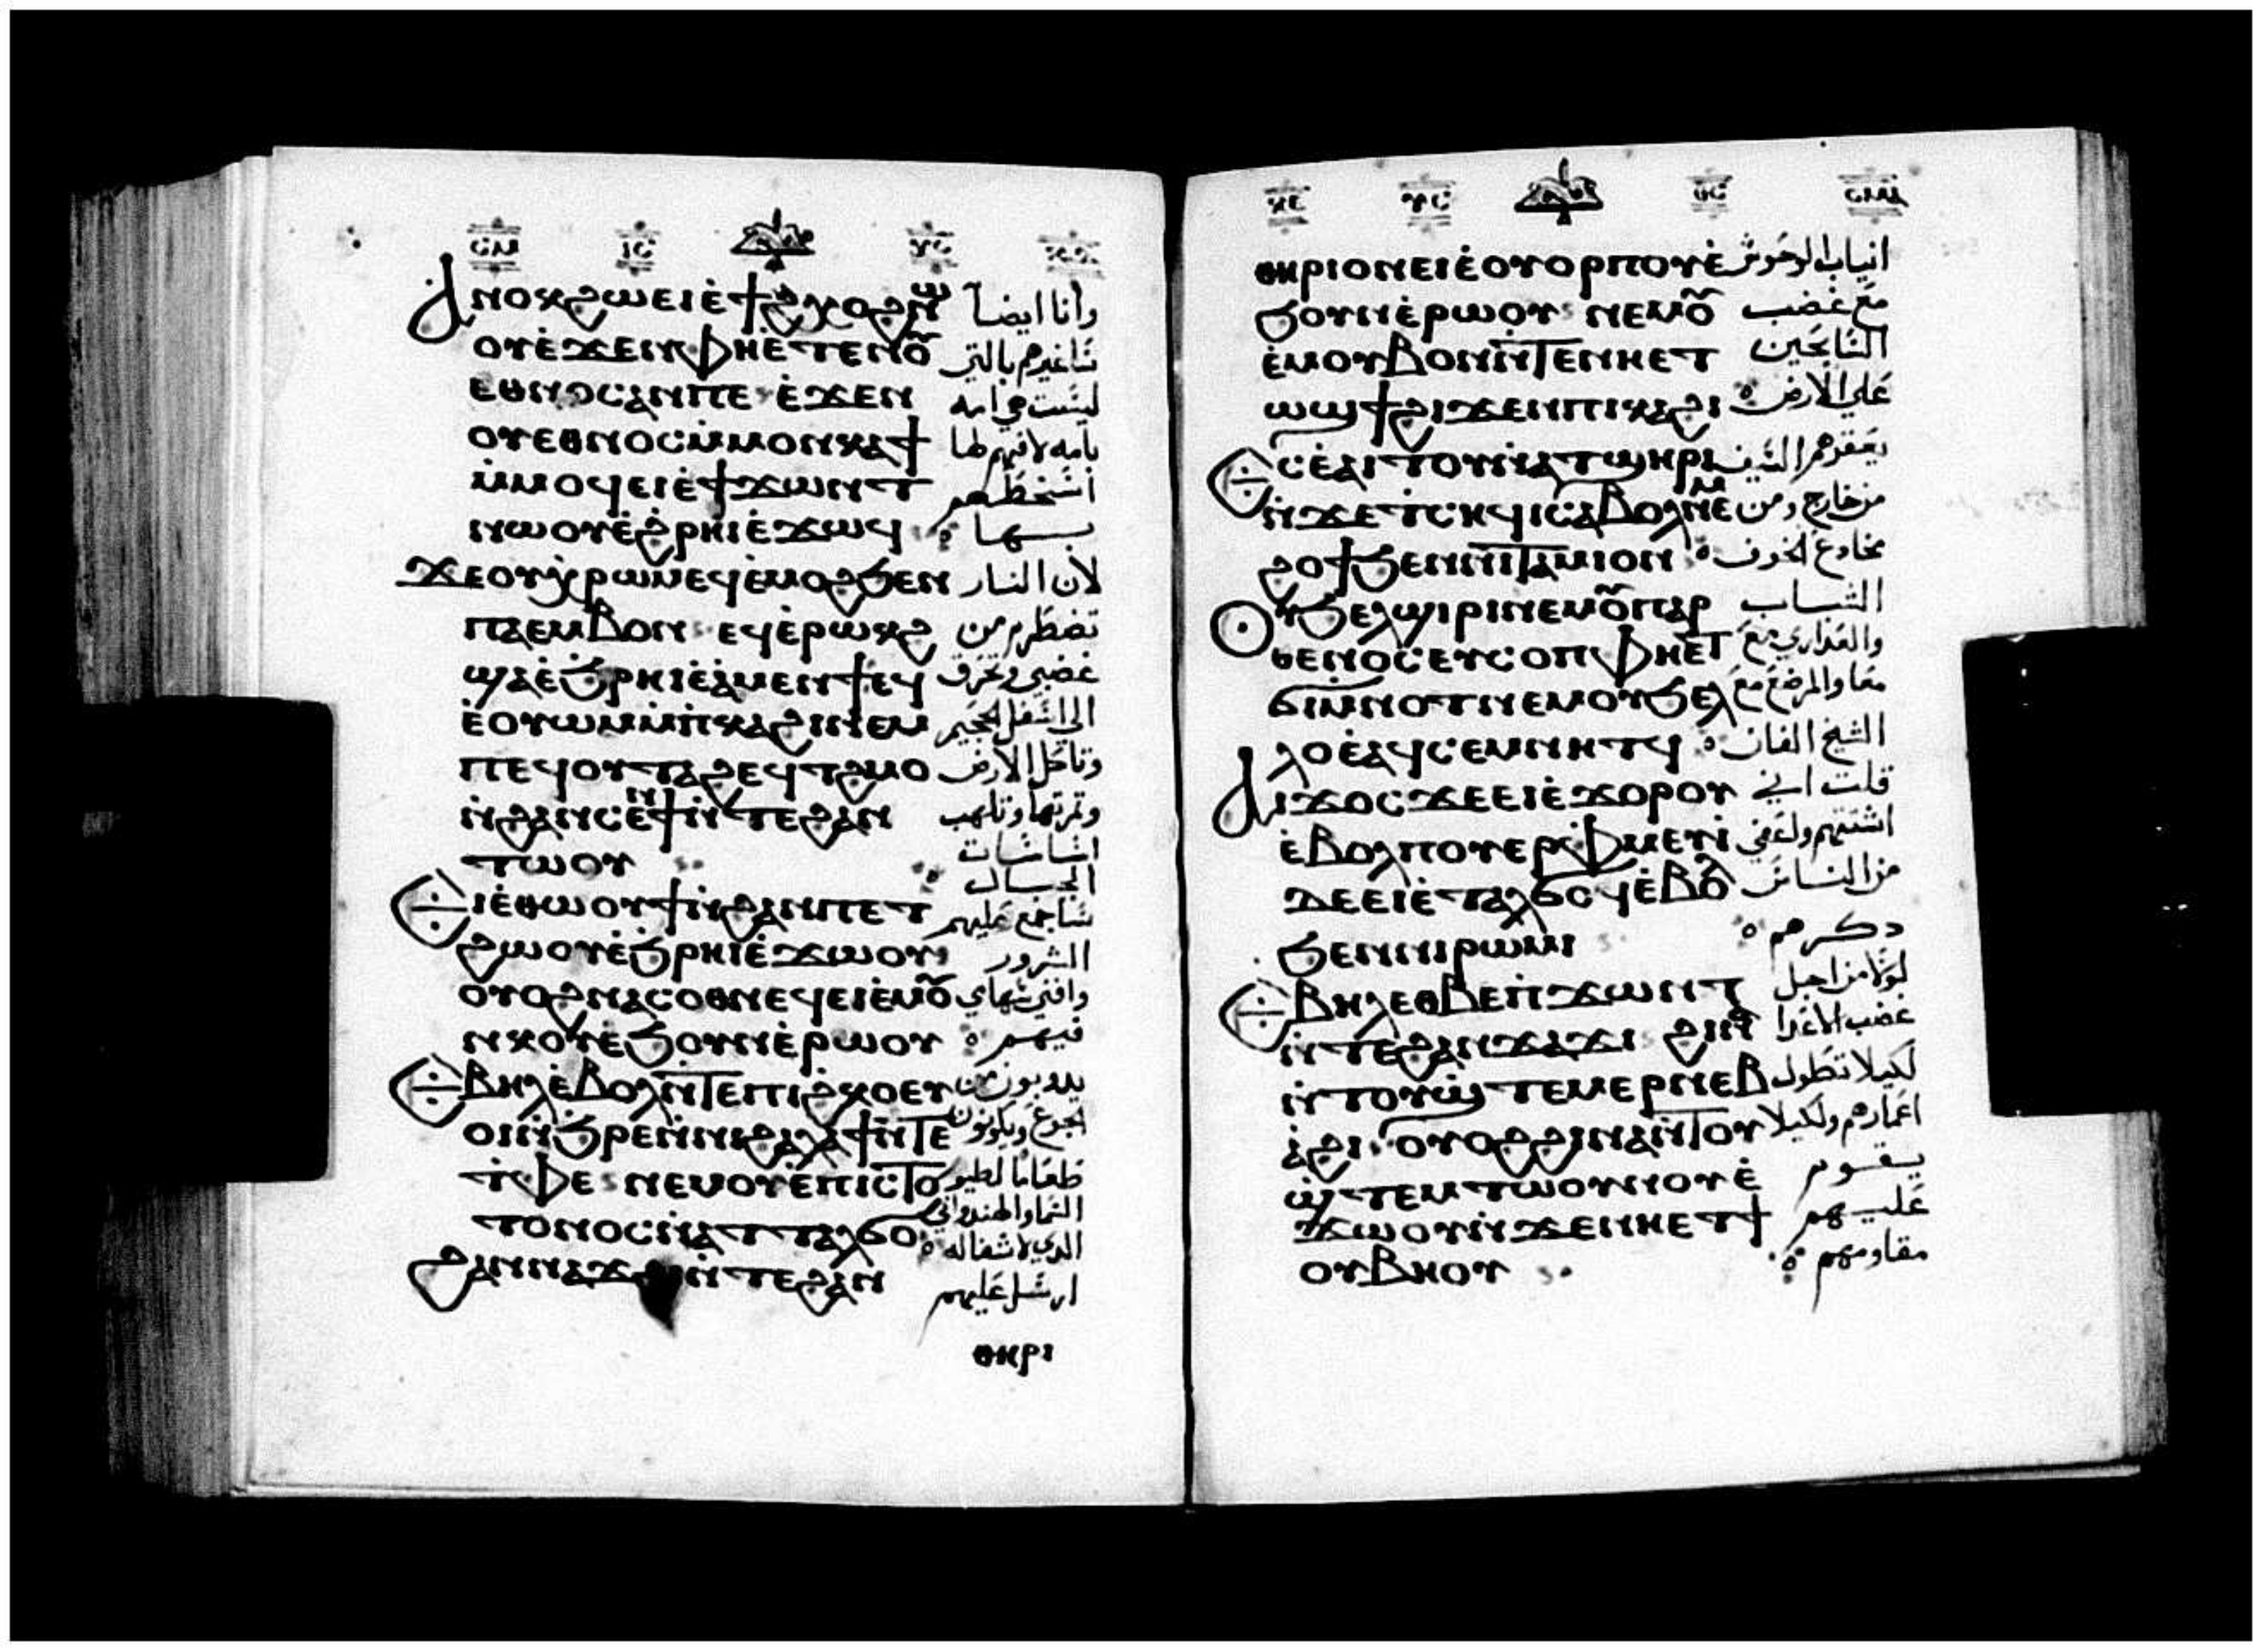 ⲤⲘ ⲒⲤ ⲨⲤ
Ⲁⲛⲟⲕϩⲱⲉⲓⲉ̀ϯⲭⲟϩⲛⲱ
ⲟⲩⲉ̀ϫⲉⲛⲫⲏⲉ̀ⲧⲉⲛⲟ̄
ⲉⲑⲛⲟⲥⲁⲛⲡⲉ ⲉ̀ϫⲉⲛ
ⲟⲩⲉⲑⲛⲟⲥⲙ̀ⲙⲟⲛⲕⲁϯ
ⲙ̀ⲙⲟϥⲉⲓⲉ̀ϯϫⲱⲛⲧ
ⲛⲱⲟⲩⲉ̀ϩ̀ⲣⲏⲓⲉ̀ϫⲱϥ
ϫⲉⲟⲩⲭⲣⲱⲙⲉϥⲉ̀ⲙⲟϩϧⲉⲛ
ⲡⲁⲉⲙⲃⲟⲛ ⲉϥⲉ̀ⲣⲱⲕϩ
ϣⲁⲉ̀ϧⲣⲏⲓⲉ̀ⲁⲙⲉⲛϯⲉϥ
ⲉ̀ⲟⲩⲱⲙⲙ̀ⲡ̀ⲕⲁϩⲓⲛⲉⲙ
ⲡⲉϥⲟⲩⲧⲁϩⲉϥⲧϩⲙⲟ
ⲛ̀ϩⲁⲛⲥⲉⲛϯⲛ̀ⲧⲉϩⲁⲛ
ⲧⲱⲟⲩ
ⲉⲓⲉ̀ⲑⲱⲟⲩϯⲛ̀ϩⲁⲛⲡⲉⲧ
ϩⲱⲟⲩⲉ̀ϧⲣⲏⲓⲉ̀ϫⲱⲟⲩ
ⲟⲩⲟϩⲛⲁⲥⲟⲑⲛⲉϥⲉⲓⲉ̀ⲙⲟ̄
ⲛⲕⲟⲩⲉ̀ϧⲟⲩⲛⲉ̀ⲣⲱⲟⲩ
ⲉⲃⲏⲗⲉ̀ⲃⲟⲗⲛ̀ⲧⲉⲡⲓϩ̀ⲕⲟⲉⲩ
ⲟⲓⲛ̀ϧⲣⲉⲛ̀ⲛⲓϩⲁⲗⲁϯⲛ̀ⲧⲉ
ⲧ̀ⲫⲉ ⲛⲉⲙⲟⲩⲉ̀ⲡⲓⲥⲧⲟ
ⲧⲟⲛⲟⲥⲛ̀ⲁⲧⲧⲁⲗϭⲟ
ϩⲁⲛⲛⲁϫϩⲓⲛ̀ⲧⲉϩⲁⲛ
ⲑⲏⲣⲓ
وانا ايضا
ساغيرهم بالتي
ليست هي امه
بامه لا فهم لها
اسخطهم
بها
لان النار
تضطرم من
غضبي وتحرق
الي اسفل الجحيم
وتاكل الارض
وثمرتها وتلهب
اساسات
الجبال
ساجمع عليهم
الشرور
وافني سهامي
فيهم
يذوبون من
الجوع ويكونون
طعاما لطيور
السما
الذي لا شفا له
ارسل عليهم
ⲬⲤ ⲨⲤ ⲐⲤ ⲤⲘⲀ
ⲑⲏⲣⲓⲟⲛⲉⲓⲉ̀ⲟⲩⲟⲣⲡⲟⲩⲉ̀
ϧⲟⲩⲛⲉ̀ⲣⲱⲟⲩ ⲛⲉⲙⲟ̄
ⲉ̀ⲙⲟⲩⲃⲟⲛⲛ̀ⲧⲉⲛⲏⲉⲧ
ⲱϣϯϩⲓϫⲉⲛⲡⲓⲕⲁϩⲓ
ⲉⲥⲉ̀ⲁⲓⲧⲟⲩⲛ̀ⲁⲧϣⲏⲣⲓ
ⲛ̀ϫⲉⲧ̀ⲥⲏϥⲓⲥⲁⲃⲟⲗⲛⲉⲙ
ϩⲟϯϧⲉⲛⲛⲓⲧⲁⲙⲓⲟⲛ
ⲟⲩϧⲉⲗϣⲓⲣⲓⲛⲉⲙⲟ̄ⲡⲁⲣ
ⲑⲉⲛⲟⲥⲉⲩⲥⲟⲡ ⲫⲏⲉⲧ
ϭⲓⲙ̀ⲛⲟⲧⲛⲉⲙⲟⲩϧⲉⲗ
ⲗⲟⲉ̀ⲁϥⲥⲉⲙⲛⲏⲧϥ
Ⲁⲓϫⲟⲥϫⲉⲉⲓⲉ̀ϫⲟⲣⲟⲩ
ⲉ̀ⲃⲟⲗⲡⲟⲩⲉⲣⲫ̀ⲙⲉⲩⲓ̀
ⲇⲉⲉⲓⲉ̀ⲧⲁⲗϭⲟϥⲉ̀ⲃⲟ̄
ϧⲉⲛⲛⲓⲣⲱⲙⲓ
ⲉⲃⲏⲗⲉⲑⲃⲉⲡ̀ϫⲱⲛⲧ
ⲛ̀ⲧⲉϩⲁⲛϫⲁϫⲓ ϩⲓⲛⲁ
ⲛ̀ⲧⲟⲩϣ̀ⲧⲉⲙⲉⲣⲛⲉⲃ
ⲁ̀ϩⲓ ⲟⲩⲟϩϩⲓⲛⲁⲛ̀ⲧⲟⲩ
ϣ̀ⲧⲉⲙⲧⲱⲟⲩⲛⲟⲩⲉ̀
ϫⲱⲟⲩⲛ̀ϫⲉⲛⲏⲉⲧϯ
ⲟⲩⲃⲏⲟⲩ
انياب الوحوش
مع غضب
علي الارض
يعقرهم السيف
من خارج ومن
مخادع الخوف
الشباب
والعذاري مع
معا والمرضع مع
الشيخ الفان
قلت اني
اشتتهم
من الناس
ذكرهم
لولا من اجل
غضب الاعدا
لكيلا تطول
اعمارهم ولكيلا
يقوم
عليهم
مقاومهم